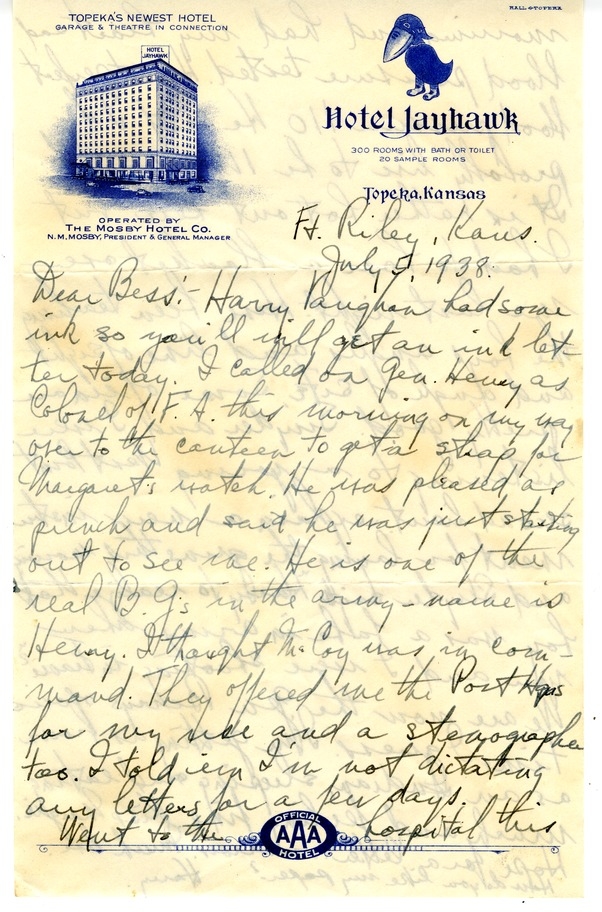 HALL TOPEKA
TOPEKA'S NEWEST HOTEL
GARAGE & THEATRE IN CONNECTION
HOTEL
JAYHAWK
Hotel Jayhawk
300 ROOMS WITH BATH OR TOILET
20 SAMPLE ROOMS
Topeka, Kansas
OPERATED BY
THE MOSBY HOTEL CO.
N.M. MOSBY, PRESIDENT & GENERAL MANAGER
Ft. Riley, Kans.
July 5, 1938.
Dear Bess:- Harry Vaughan had some
ink so you'll get an ink let-
ter today. I called on Gen. Henry as
Colonel of F.A. this morning on my way
over to the canteen to get a strap for
Margaret's watch. He was pleased as
punch and said he was just starting
out to see me. He is one of the
real B.G's in the army - name is
Henry. I thought McCoy was in com-
mand. They offered me the Post Hqrs
for my use and a stenographer
too. I told 'em I'm not dictating
any letters for a few days.
Went to the hospital this
OFFICIAL
AAA
HOTEL